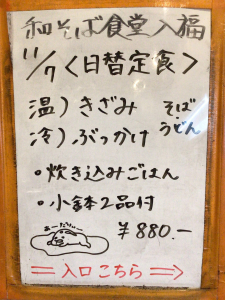 和そば食堂入福
11/7〈日替定食〉
温)きざみ そば
冷)ぶっかけ うどん
・炊き込みごはん
・小鉢2品付
あーだりぃー
¥880.-
入口こちら